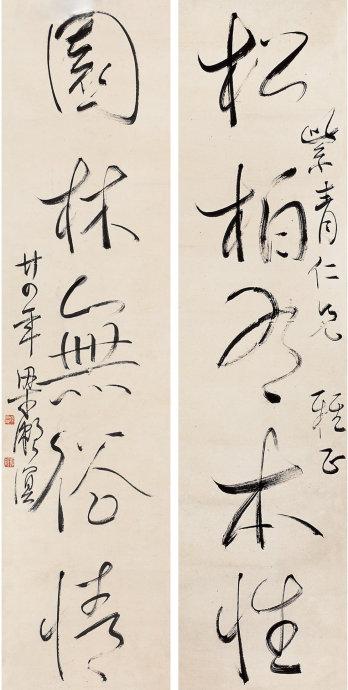 紫青仁兄 雅正
松柏有本性
園林無俗情
廿四年 梁漱溟